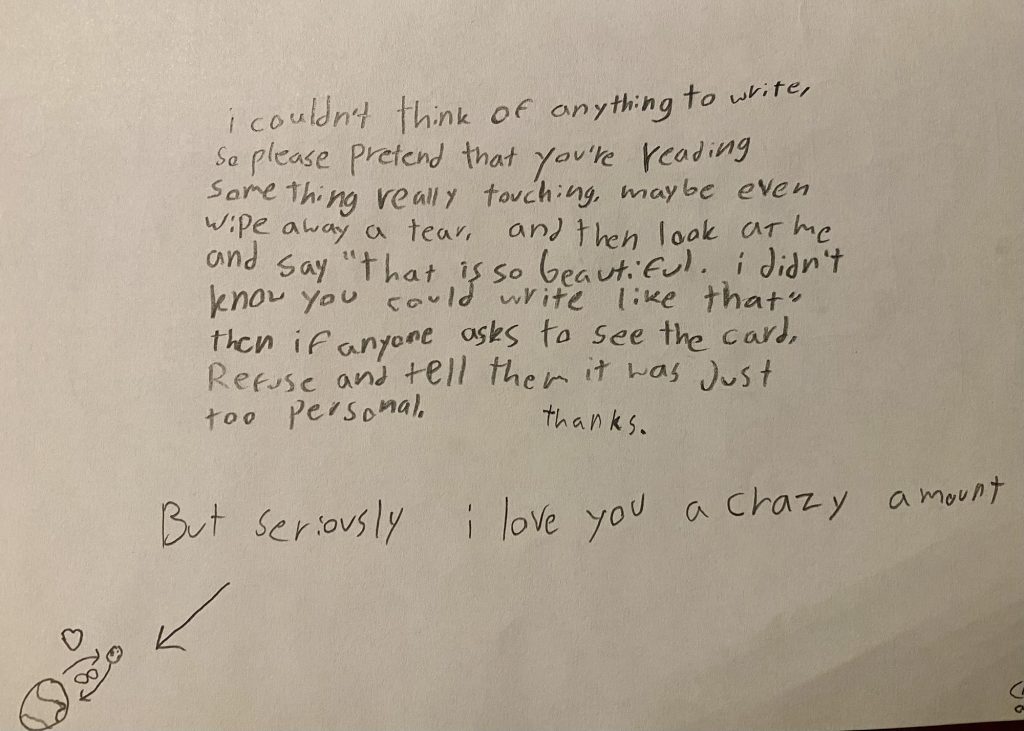 i couldn't think of anything to write,
so please pretend that you're reading
something really touching, maybe even
wipe away a tear, and then look at me
and say "that is so beautiful. i didn't
know you could write like that"
then if anyone asks to see the card,
Refuse and tell them it was Just
too personal.
thanks.
But seriously i love you a crazy amount